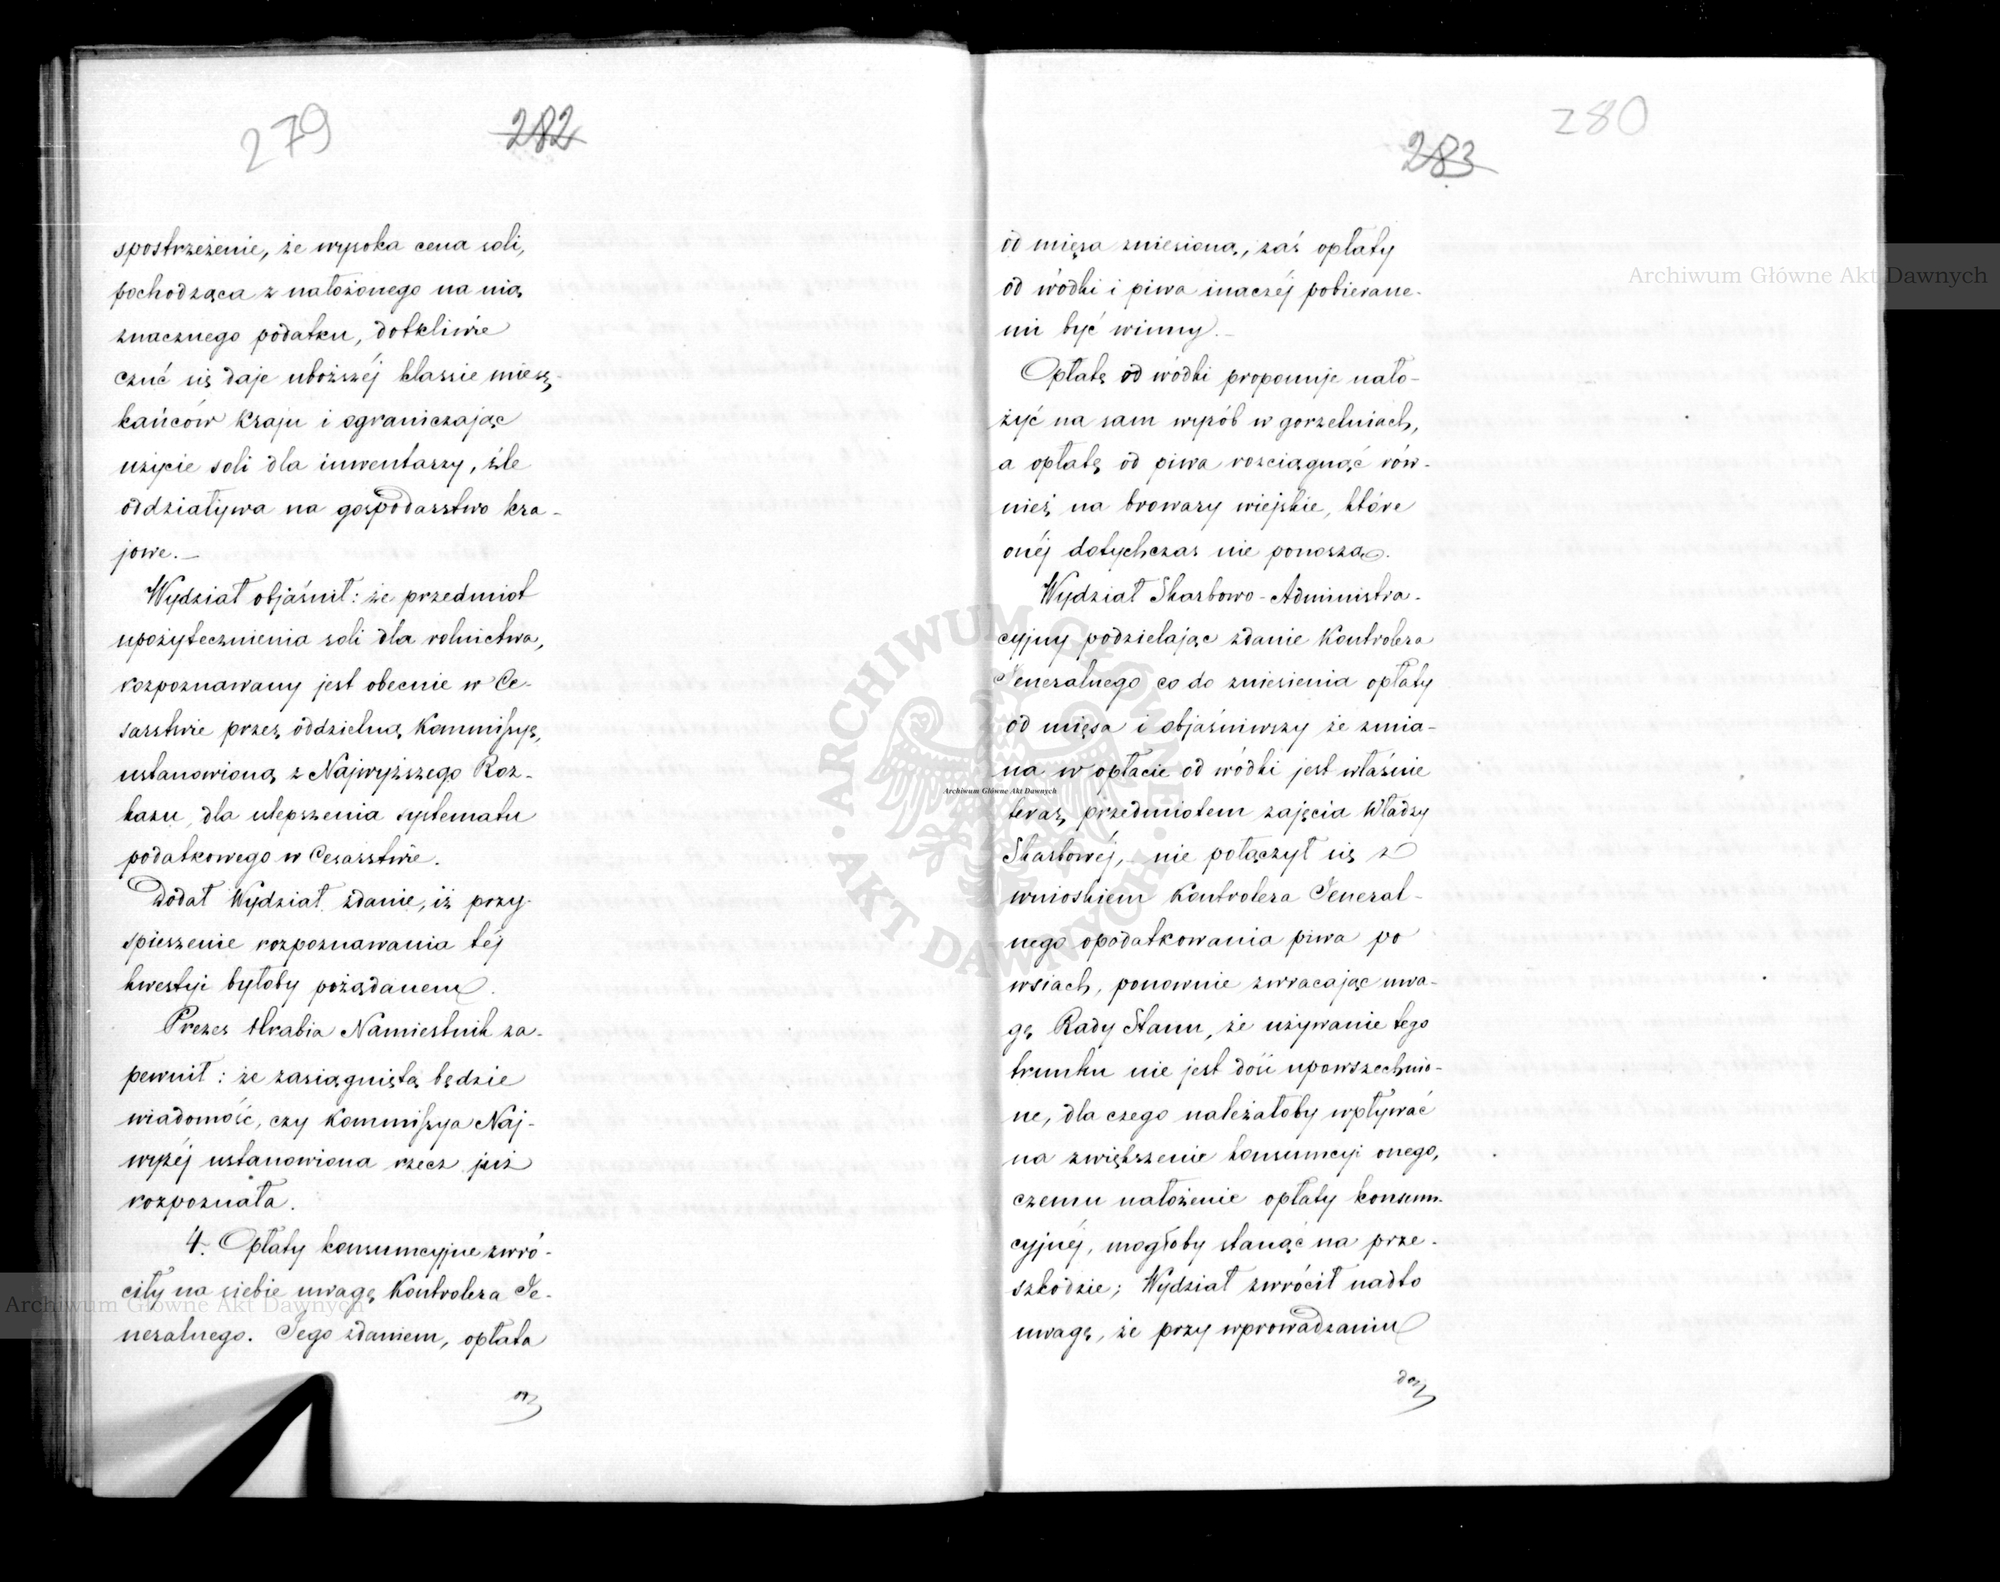 279
282
spostrzeżenie, że wysoka cena soli,
pochodząca z nałożonego na nią
znacznego podatku, dotkliwie
czuć się daje uboższéj klassie miesz-
kańców kraju i ograniczając
użycie soli dla inwentarzy, źle
oddziaływa na gospodarstwo kra-
jowe.—
Wydział objaśnił: że przedmiot
upożytecznienia soli dla rolnictwa,
rozpoznawany jest obecnie w Ce-
sarstwie przez oddzielną Kommissyę,
ustanowioną z Najwyższego Roz-
kazu, dla ulepszenia systematu
podatkowego w Cesarstwie.
Dodał Wydział zdanie, iż przy-
spieszenie rozpoznawania téj
kwestyi byłoby pożądanem.
Prezes Hrabia Namiestnik za-
pewnił: że zasiągniętą będzie
wiadomość, czy Kommissya Naj-
wyżéj ustanowiona rzecz już
rozpoznała.
4. Opłaty konsumcyjne zwró-
ciły na siebie uwagę Kontrolera Je-
neralnego. Jego zdaniem, opłata
od
280
283
od mięsa zniesioną, zaś opłaty
od wódki i piwa inaczéj pobierane-
mi być winny.—
Opłatę od wódki proponuje nało-
żyć na sam wyrób w gorzelniach,
a opłatę od piwa rozciągnąć rów-
nież na browary wiejskie, które
onéj dotychczas nie ponoszą.
Wydział Skarbowo-Administra-
cyjny podzielając zdanie Kontrolera
Jeneralnego co do zniesienia opłaty
od mięsa i objaśniwszy że zmia-
na w opłacie od wódki jest właśnie
teraz przedmiotem zajęcia Władzy
Skarbowéj, nie połączył się z
wnioskiem Kontrolera Jeneral-
nego opodatkowania piwa po
wsiach, ponownie zwracając uwa-
gę Rady Stanu, że używanie tego
trunku nie jest dość upowszechnio-
ne, dla czego należałoby wpływać
na zwiększenie konsumcyi onego,
czemu nałożenie opłaty konsum-
cyjnéj, mogłoby stanąć na prze-
szkodzie; Wydział zwrócił nadto
uwagę, że przy wprowadzaniu
Archiwum Główne Akt Dawnych
Archiwum Główne Akt Dawnych
Archiwum Główne Akt Dawnych
ARCHIWUM GŁÓWNE
AKT DAWNYCH